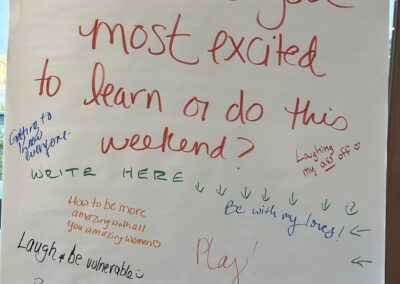 you
most excited
to learn or do this
weekend?
Getting to
know
everyone.
Laughing
my ass off
WRITE HERE
Be with my loves!
How to be more
amazing with all
you amazing women
Laugh & be vulnerable
Play!